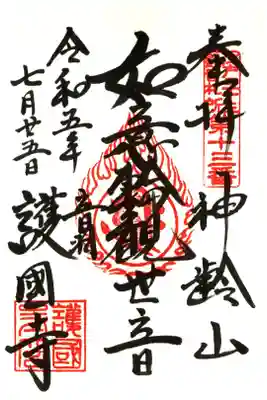 奉拝 神齢山
第十三番
如意輪観世音
令和五年
七月廿五日
護國寺